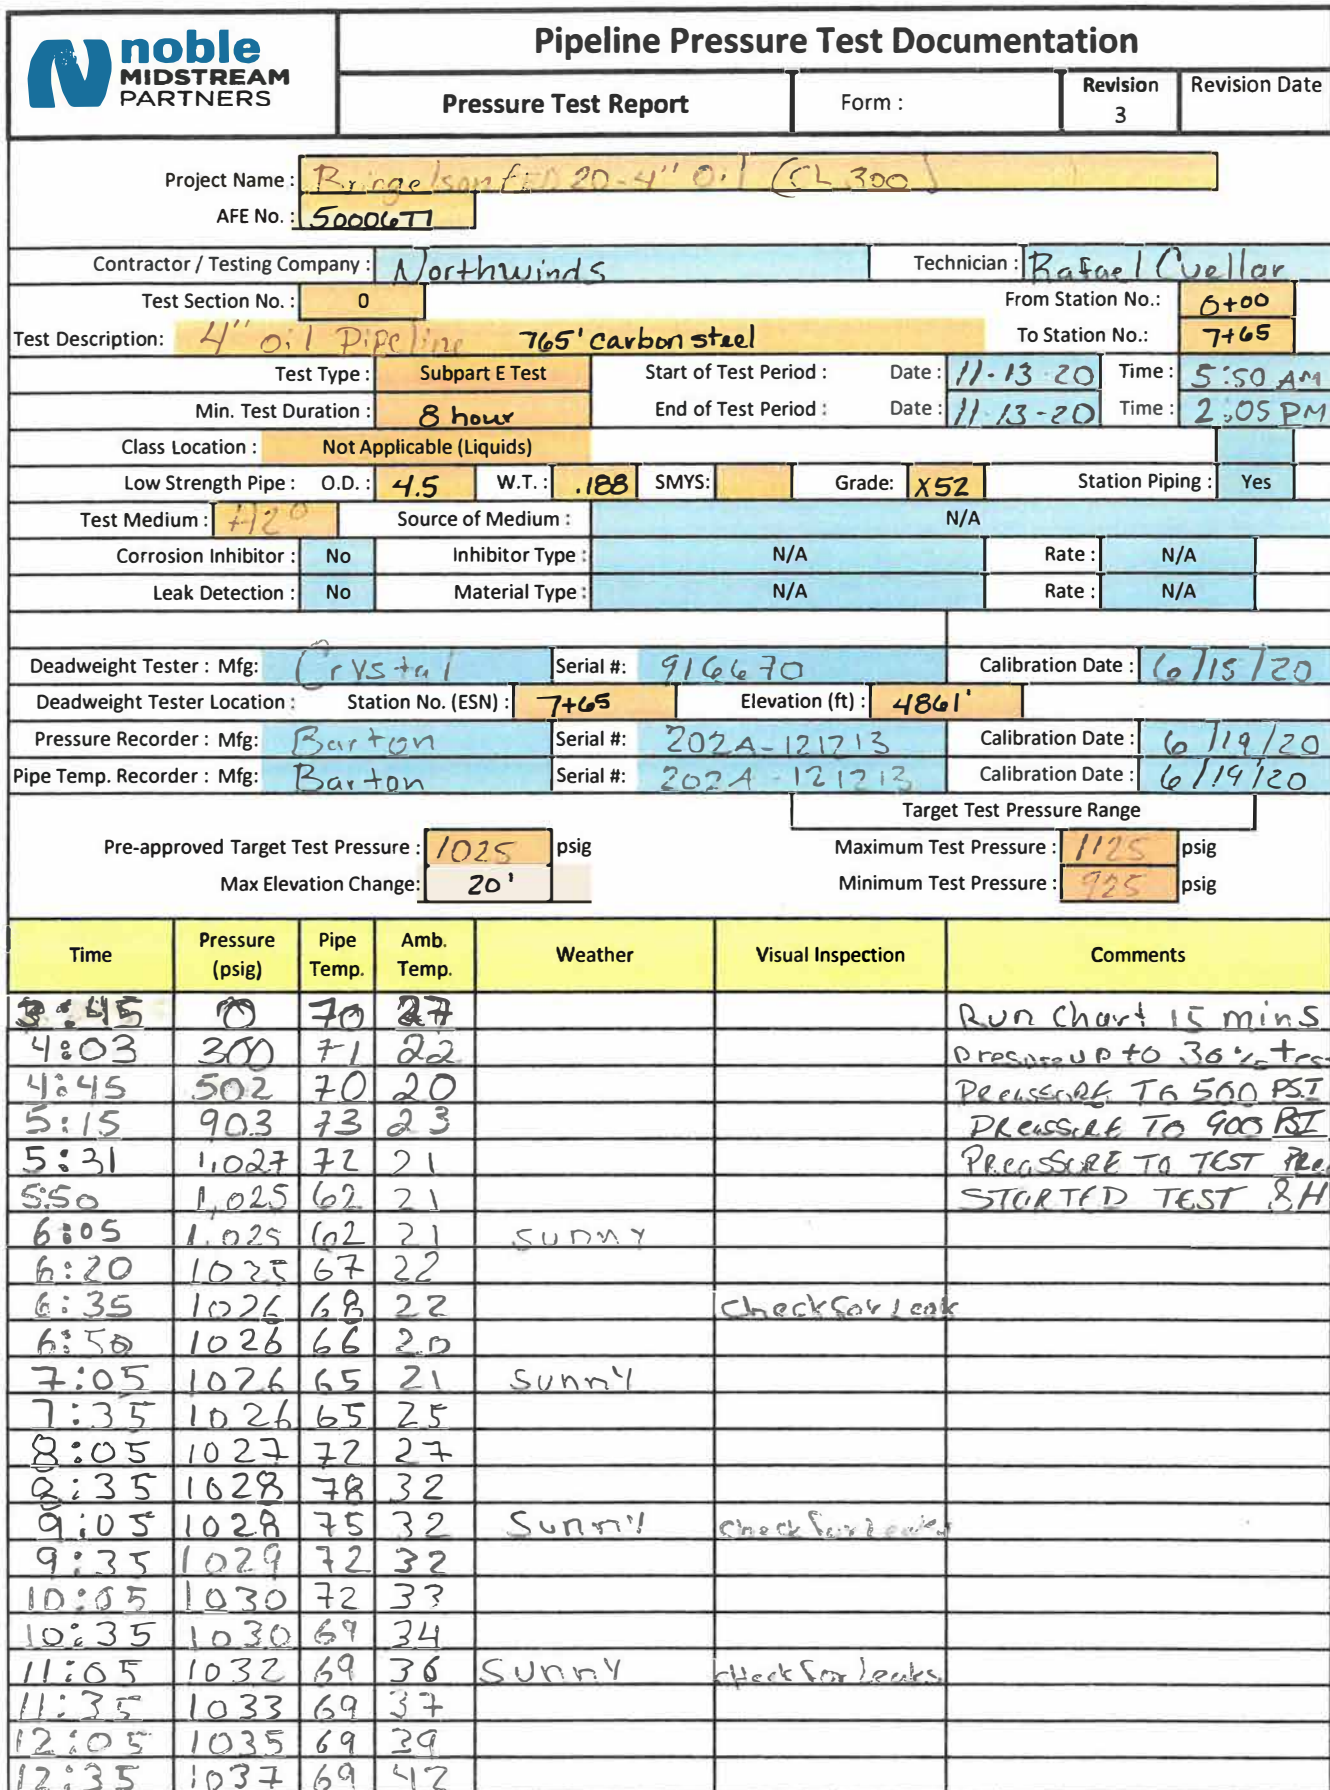 noble
MIDSTREAM
PARTNERS
Pipeline Pressure Test Documentation
Pressure Test Report Form : Revision 3 Revision Date
Project Name : Bringelson fED 20-4" Oil (CL 300)
AFE No. : 5000677
Contractor / Testing Company : Northwinds Technician : Rafael Cuellar
Test Section No. : 0 From Station No.: 0+00
Test Description: 4" oil Pipeline 765' Carbon steel To Station No.: 7+65
Test Type : Subpart E Test Start of Test Period : Date : 11-13-20 Time : 5:50 AM
Min. Test Duration : 8 hour End of Test Period : Date : 11-13-20 Time : 2:05 PM
Class Location : Not Applicable (Liquids)
Low Strength Pipe : O.D. : 4.5 W.T. : .188 SMYS: Grade: X52 Station Piping : Yes
Test Medium : H20 Source of Medium : N/A
Corrosion Inhibitor : No Inhibitor Type : N/A Rate : N/A
Leak Detection : No Material Type : N/A Rate : N/A
Deadweight Tester : Mfg: Crystal Serial #: 916670 Calibration Date : 6/15/20
Deadweight Tester Location : Station No. (ESN) : 7+65 Elevation (ft) : 4861'
Pressure Recorder : Mfg: Barton Serial #: 202A-121213 Calibration Date : 6/19/20
Pipe Temp. Recorder : Mfg: Barton Serial #: 202A-121213 Calibration Date : 6/19/20
Target Test Pressure Range
Pre-approved Target Test Pressure : 1025 psig Maximum Test Pressure : 1125 psig
Max Elevation Change: 20' Minimum Test Pressure : 925 psig
Time Pressure (psig) Pipe Temp. Amb. Temp. Weather Visual Inspection Comments
3:45 0 70 27 Run Chart 15 mins
4:03 300 71 22 Presure up to 30% tes
4:45 502 70 20 PReassURE TO 500 PSI
5:15 903 73 23 PReassURE TO 900 PSI
5:31 1,027 72 21 PReassURE TO TEST PRe
5:50 1,025 62 21 STARTED TEST 8H
6:05 1,025 62 21 SUNNY
6:20 1025 67 22
6:35 1026 68 22 Check for Leak
6:50 1026 66 20
7:05 1026 65 21 Sunny
7:35 1026 65 25
8:05 1027 72 27
8:35 1028 78 32
9:05 1028 75 32 Sunny Check for Leaks
9:35 1029 72 32
10:05 1030 72 33
10:35 1030 69 34
11:05 1032 69 36 Sunny check for Leaks
11:35 1033 69 37
12:05 1035 69 39
12:35 1037 69 42